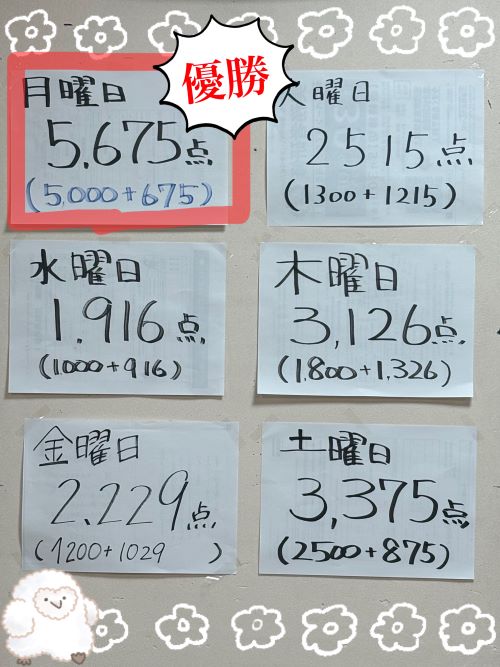 優勝
月曜日
5,675点
(5,000+675)
火曜日
2515点
(1300+1215)
水曜日
1,916点
(1000+916)
木曜日
3,126点
(1,800+1,326)
金曜日
2,229点
(1200+1029)
土曜日
3,375点
(2500+875)